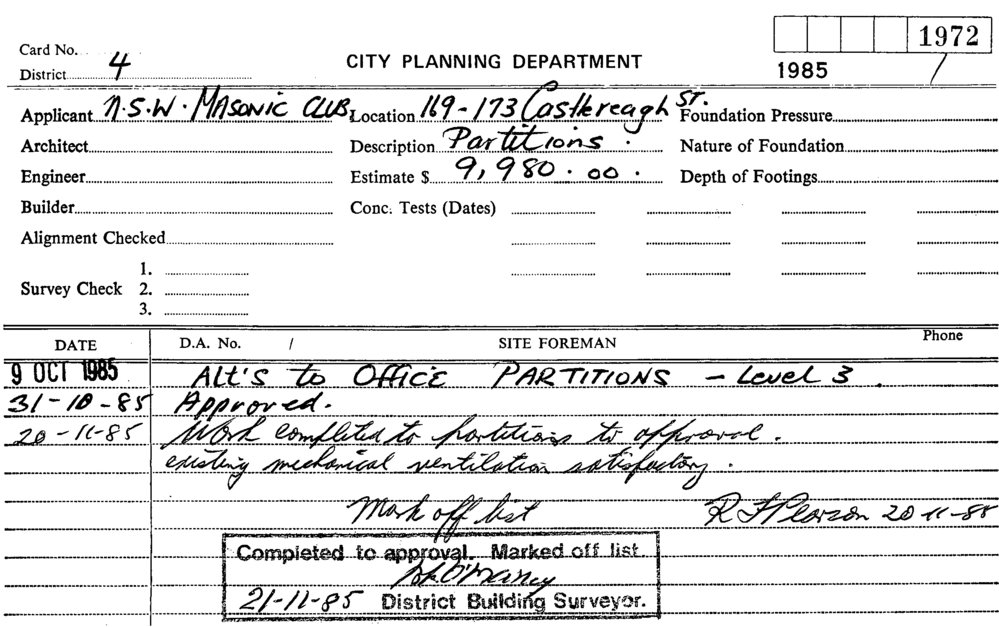 Card No.
1972
District 4
CITY PLANNING DEPARTMENT
1985 /
Applicant N.S.W. MASONIC CLUB, Location 169-173 Castlereagh ST. Foundation Pressure
Architect Description Partitions. Nature of Foundation
Engineer Estimate $ 9,980.00. Depth of Footings
Builder Conc. Tests (Dates)
Alignment Checked
1.
Survey Check 2.
3.
DATE D.A. No. / SITE FOREMAN Phone
9 OCT 1985 ALT'S to OFFICE PARTITIONS - Level 3.
31-10-85 Approved.
20-11-85 Work completed to partitions to approval.
existing mechanical ventilation satisfactory.
Mark off list R Pearson 20-11-85
Completed to approval. Marked off list
21-11-85 District Building Surveyor.